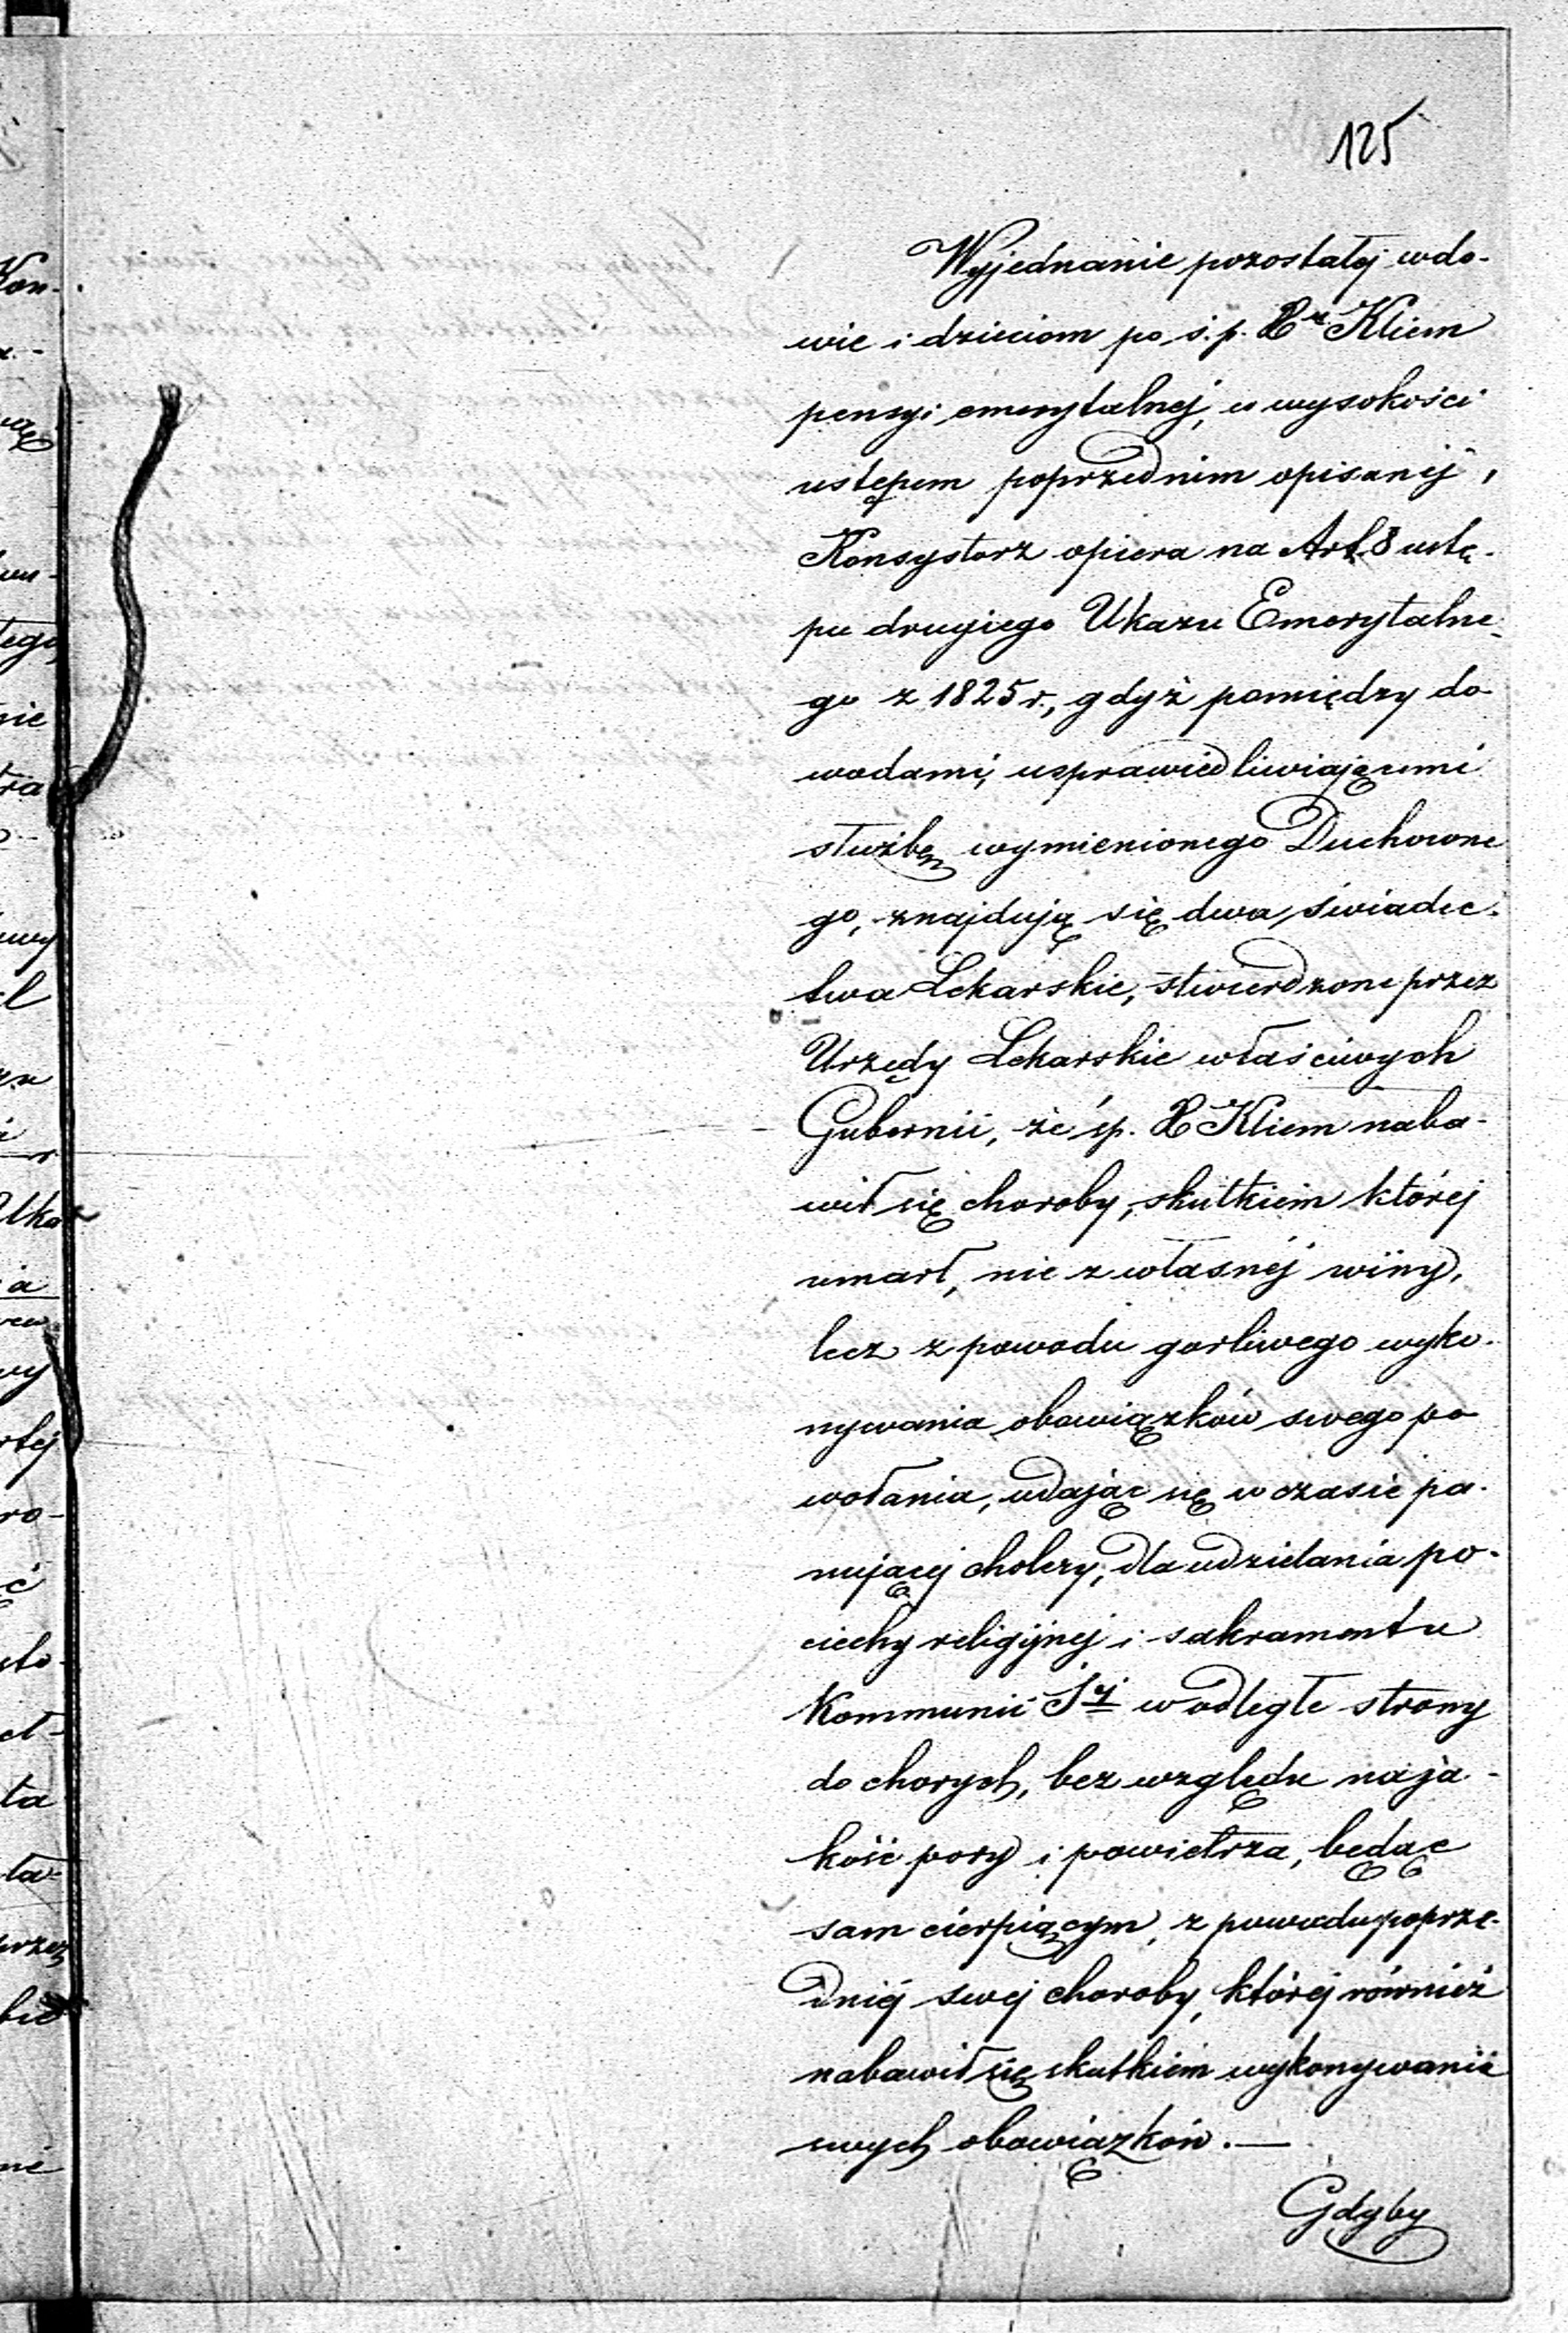 125
Wyjednanie pozostałej wdo-
wie i dzieciom po ś.p. Xr Kliem
pensyi emerytalnej, w wysokości
ustępem poprzednim opisanéj,
Konsystorz opiera na Art. 8 ustę-
pu drugiego Ukazu Emerytalne-
go z 1825 r., gdyż pomiędzy do-
wodami, usprawiedliwiającemi
służbę wymienionego Duchowne
go, znajdują się dwa świadec-
twa Lekarskie, stwierdzone przez
Urzędy Lekarskie właściwych
Gubernii, że śp. X Kliem naba-
wił się choroby, skutkiem której
umarł, nie z własnéj winy,
lecz z powodu gorliwego wyko-
nywania obowiązków swego po
wołania, udając się w czasie pa-
nującej cholery, dla udzielania po-
ciechy religijnej i sakramentu
Kommunii Śéj w odległe strony
do chorych, bez względu na ja-
kość pory i powietrza, będąc
sam cierpiącym, z powodu poprze-
dniéj swej choroby, której również
nabawił się skutkiem wykonywania
swych obowiązków. —
Gdyby